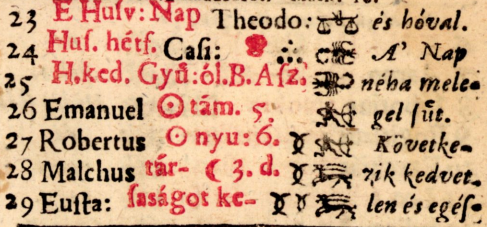 23 E Husv: Nap Theodo: és hóval.
24 Huſ. hétf. Caſi: A' Nap
25 H.ked. Gyű:ól.B.Aſz. néha mele-
26 Emanuel ☉ tám. 5. gel ſűt.
27 Robertus ☉ nyu: 6. Követke-
28 Malchus tár- ☾ 3. d. zik kedvet-
29 Euſta: ſaságot ke- len és egéſ-